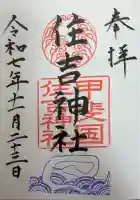 奉拝
甲斐国
住吉神社
住吉神社
令和七年十一月二十三日